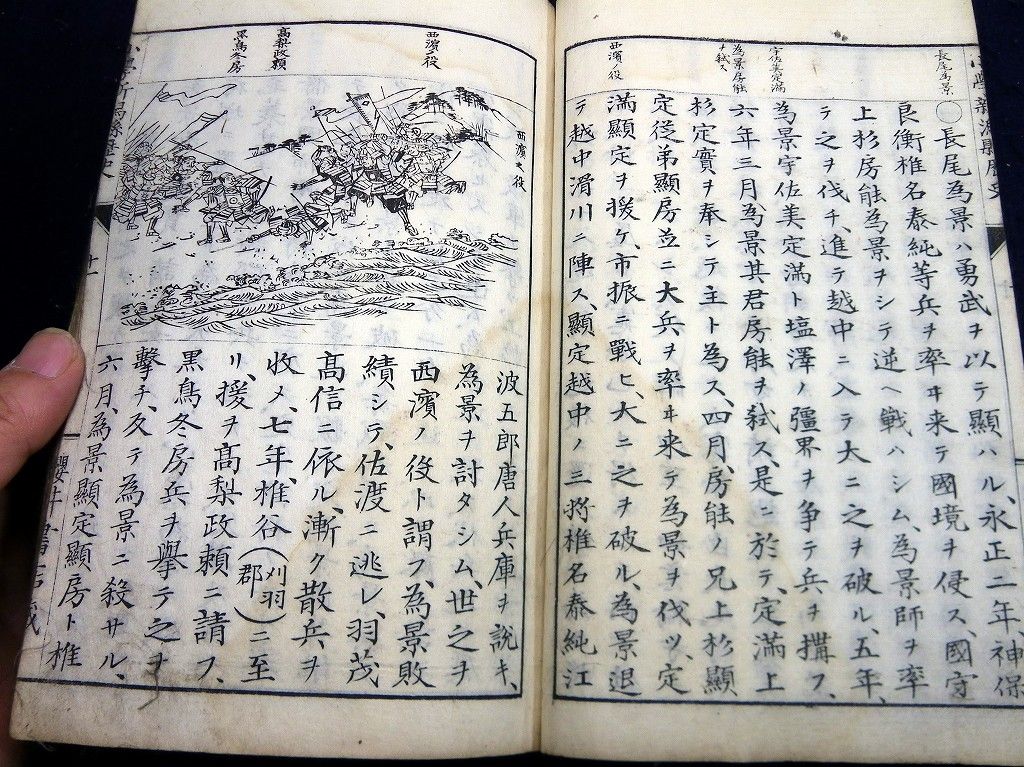 長尾為景
〇長尾為景ハ勇武ヲ以テ顯ハル、永正二年、神保
良衡椎名泰純等兵ヲ率ヰ来テ國境ヲ侵ス、國守
上杉房能為景ヲシテ逆ヘ戰ハシム、為景師ヲ率
テ之ヲ伐チ、進テ越中ニ入テ大ニ之ヲ破ル、五年、
宇佐美定滿
為景宇佐美定滿ト塩澤ノ彊界ヲ争テ兵ヲ搆フ、
為景房能
ヲ弑ス
六年三月、為景其君房能ヲ弑ス、是ニ於テ、定滿上
杉定實ヲ奉シテ主ト為ス、四月、房能ノ兄上杉顯
定従弟顯房並ニ大兵ヲ率ヰ来テ為景ヲ伐ツ、定
滿顯定ヲ援ケ、市振ニ戰ヒ、大ニ之ヲ破ル、為景退
西濱ノ役
テ越中滑川ニ陣ス、顯定越中ノ三将椎名泰純江
西濱ノ役
西濱之役
波五郎唐人兵庫ヲ説キ、
為景ヲ討タシム、世之ヲ
西濱ノ役ト謂フ、為景敗
績シテ、佐渡ニ逃レ、羽茂
高信ニ依ル、漸ク散兵ヲ
收メ、七年、椎谷(刈羽郡)ニ至
高梨政頼
リ、援ヲ高梨政頼ニ請フ、
黒鳥冬房
黒鳥冬房兵ヲ擧テ之ヲ
擊チ、反テ為景ニ殺サル、
六月、為景顯定顯房ト椎